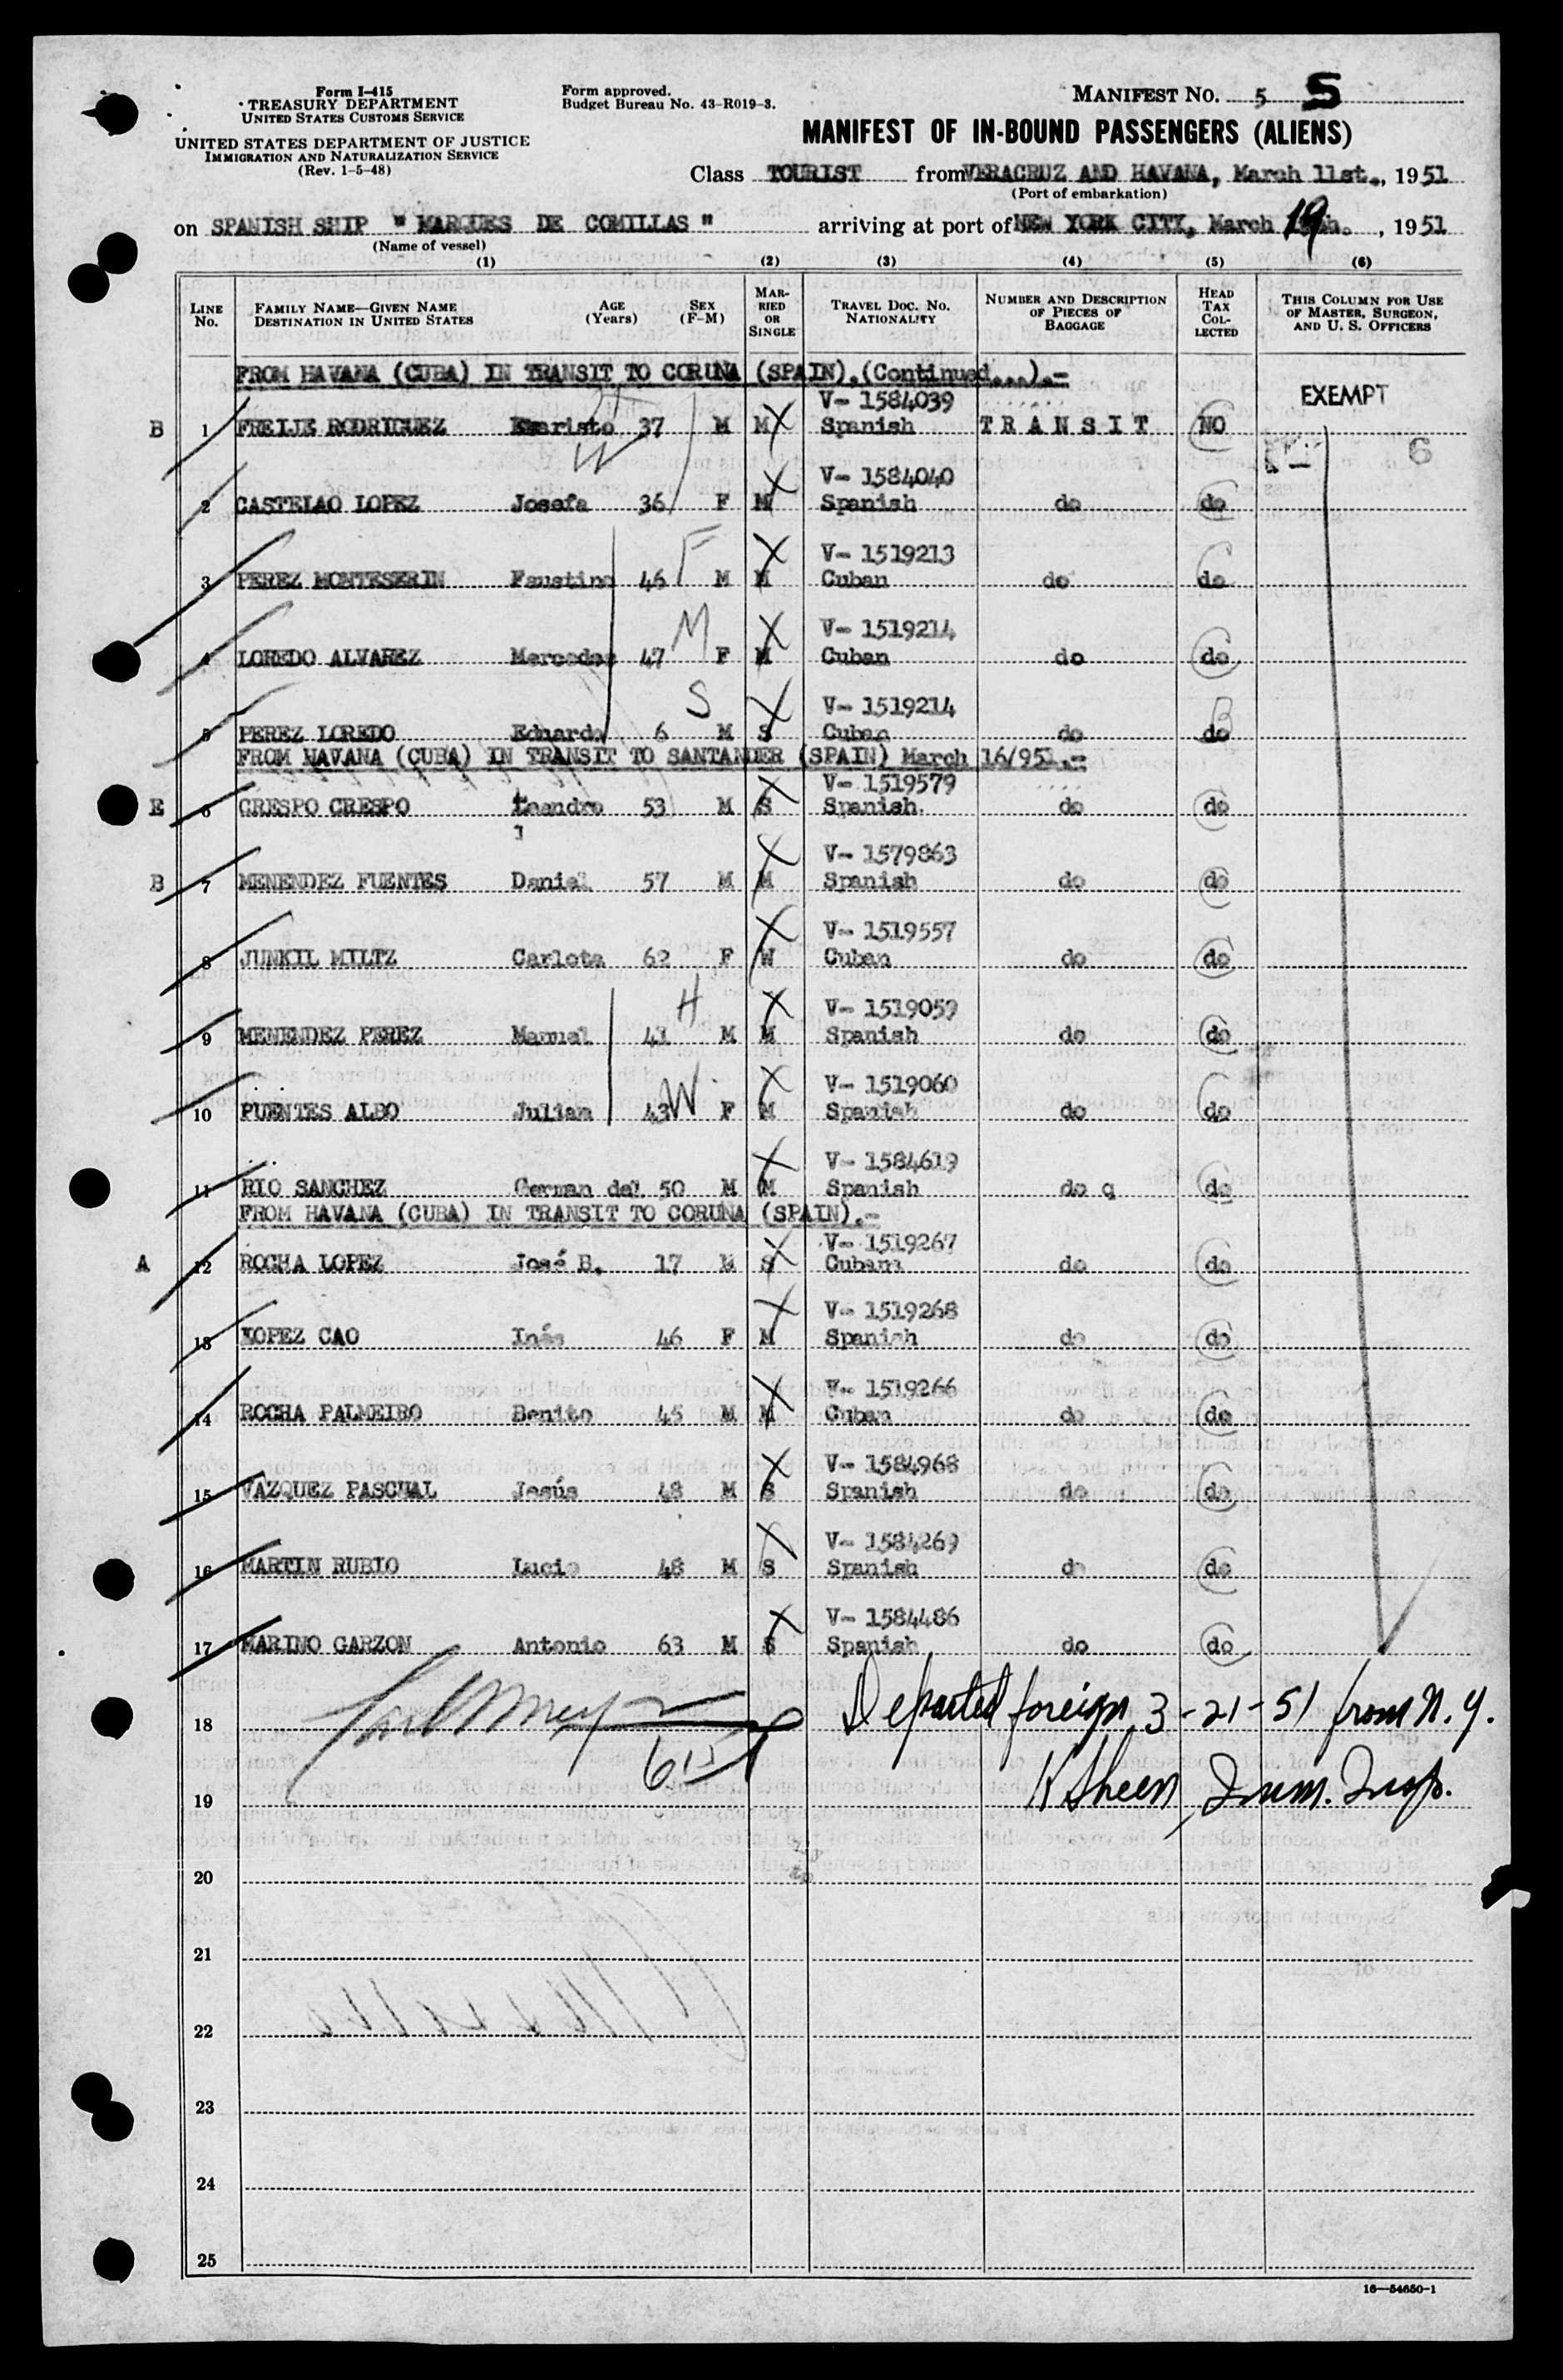 Form I-415
TREASURY DEPARTMENT
UNITED STATES CUSTOMS SERVICE
UNITED STATES DEPARTMENT OF JUSTICE
IMMIGRATION AND NATURALIZATION SERVICE
(Rev. 1-5-48)
Form approved.
Budget Bureau No. 43-R019-3.
MANIFEST NO. 5 5
MANIFEST OF IN-BOUND PASSENGERS (ALIENS)
Class TOURIST from VERACRUZ AND HAVANA, March 11st., 1951
(Port of embarkation)
on SPANISH SHIP " MARQUES DE COMILLAS " arriving at port of NEW YORK CITY, March 19th., 1951
(Name of vessel)
(1) (2) (3) (4) (5) (6)
LINE No. FAMILY NAME—GIVEN NAME DESTINATION IN UNITED STATES AGE (Years) SEX (F-M) MARRIED OR SINGLE TRAVEL DOC. NO. NATIONALITY NUMBER AND DESCRIPTION OF PIECES OF BAGGAGE HEAD TAX COLLECTED THIS COLUMN FOR USE OF MASTER, SURGEON, AND U. S. OFFICERS
FROM HAVANA (CUBA) IN TRANSIT TO CORUNA (SPAIN).(Continued...).-
EXEMPT
V- 1584039
B 1 FREIJE RODRIGUEZ Evaristo 37 M M Spanish TRANSIT NO
W 6
V- 1584040
2 CASTELAO LOPEZ Josefa 36 F M Spanish do do
F V- 1519213
3 PEREZ MONTESERIN Faustino 46 M M Cuban do do
M V- 1519214
4 LOREDO ALVAREZ Mercedes 47 F M Cuban do do
S V- 1519214
5 PEREZ LOREDO Eduardo 6 M S Cuban do do
FROM HAVANA (CUBA) IN TRANSIT TO SANTANDER (SPAIN) March 16/951.-
V- 1519579
E 6 CRESPO CRESPO Leandro 53 M S Spanish. do do
V- 1579863
B 7 MENENDEZ FUENTES Daniel 57 M M Spanish do do
V- 1519557
8 JUNKIL MILTZ Carlota 62 F W Cuban do do
H V- 1519059
9 MENENDEZ PEREZ Manuel 41 M M Spanish do do
W V- 1519060
10 PUENTES ALBO Julian 43 F M Spanish do do
V- 1584619
11 RIO SANCHEZ German del 50 M M Spanish do q do
FROM HAVANA (CUBA) IN TRANSIT TO CORUNA (SPAIN).-
V- 1519267
A 12 ROCHA LOPEZ José B. 17 M S Cuban do do
V- 1519268
13 LOPEZ CAO Inés 46 F M Spanish do do
V- 1519266
14 ROCHA PALMEIRO Benito 45 M M Cuban do do
V- 1584968
15 VAZQUEZ PASCUAL Jesús 48 M S Spanish do do
V- 1584269
16 MARTIN RUBIO Lucio 48 M S Spanish do do
V- 1584486
17 MARINO GARZON Antonio 63 M S Spanish do do
18 Departed foreign 3-21-51 from N.Y.
19 K Sheen, Imm. Insp.
20
21
22
23
24
25
16—54650-1